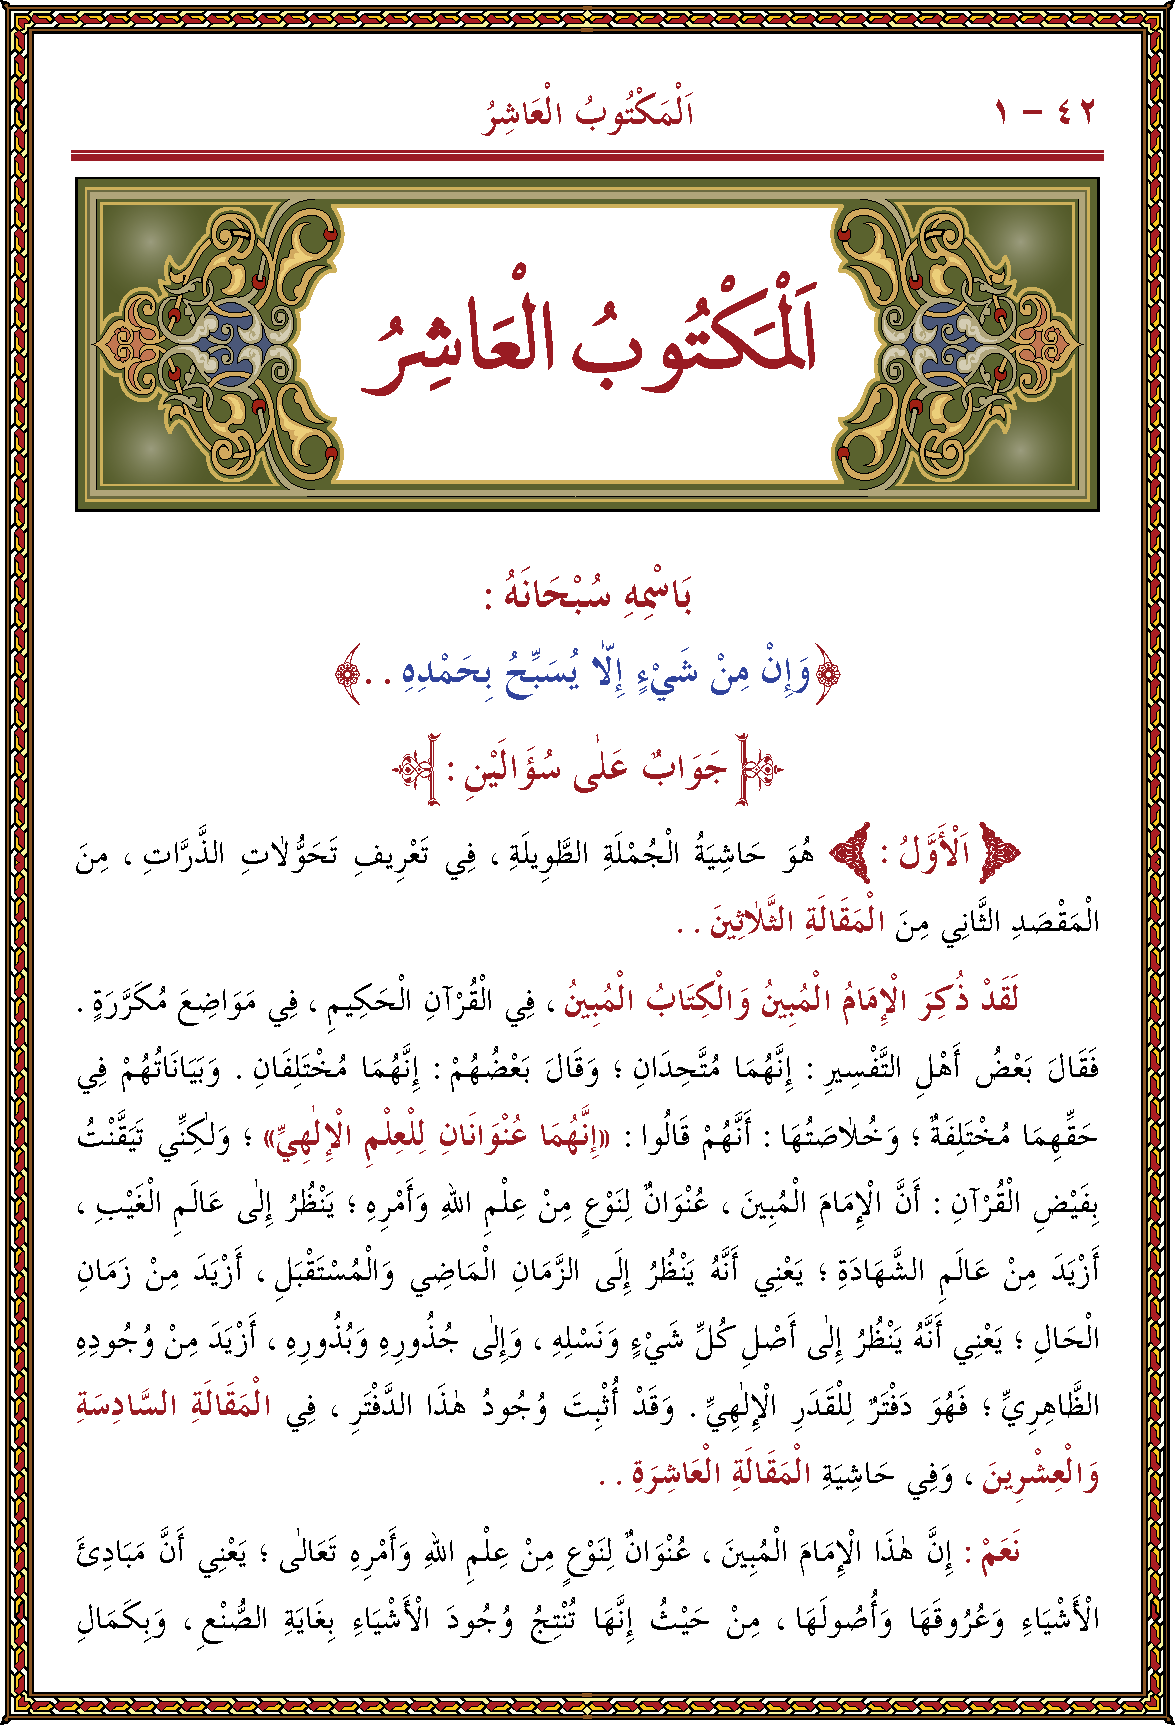 ٤٢ - ١
اَلْمَكْتُوبُ الْعَاشِرُ
اَلْمَكْتُوبُ الْعَاشِرُ
بَاسْمِهِ سُبْحَانَهُ :
﴿وَإِنْ مِنْ شَيْءٍ إِلَّا يُسَبِّحُ بِحَمْدِهِ . .﴾
جَوَابٌ عَلٰى سُؤَالَيْنِ :
اَلْأَوَّلُ : هُوَ حَاشِيَةُ الْجُمْلَةِ الطَّوِيلَةِ ، فِي تَعْرِيفِ تَحَوُّلَاتِ الذَّرَّاتِ ، مِنَ
الْمَقْصَدِ الثَّانِي مِنَ الْمَقَالَةِ الثَّلَاثِينَ . .
لَقَدْ ذُكِرَ الْإِمَامُ الْمُبِينُ وَالْكِتَابُ الْمُبِينُ ، فِي الْقُرْآنِ الْحَكِيمِ ، فِي مَوَاضِعَ مُكَرَّرَةٍ .
فَقَالَ بَعْضُ أَهْلِ التَّفْسِيرِ : إِنَّهُمَا مُتَّحِدَانِ ؛ وَقَالَ بَعْضُهُمْ : إِنَّهُمَا مُخْتَلِفَانِ . وَبَيَانَاتُهُمْ فِي
حَقِّهِمَا مُخْتَلِفَةٌ ؛ وَخُلَاصَتُهَا : أَنَّهُمْ قَالُوا : «إِنَّهُمَا عُنْوَانَانِ لِلْعِلْمِ الْإِلٰهِيِّ» ؛ وَلٰكِنِّي تَيَقَّنْتُ
بِفَيْضِ الْقُرْآنِ : أَنَّ الْإِمَامَ الْمُبِينَ ، عُنْوَانٌ لِنَوْعٍ مِنْ عِلْمِ اللهِ وَأَمْرِهِ ؛ يَنْظُرُ إِلٰى عَالَمِ الْغَيْبِ ،
أَزْيَدَ مِنْ عَالَمِ الشَّهَادَةِ ؛ يَعْنِي أَنَّهُ يَنْظُرُ إِلَى الزَّمَانِ الْمَاضِي وَالْمُسْتَقْبَلِ ، أَزْيَدَ مِنْ زَمَانِ
الْحَالِ ؛ يَعْنِي أَنَّهُ يَنْظُرُ إِلٰى أَصْلِ كُلِّ شَيْءٍ وَنَسْلِهِ ، وَإِلٰى جُذُورِهِ وَبُذُورِهِ ، أَزْيَدَ مِنْ وُجُودِهِ
الظَّاهِرِيِّ ؛ فَهُوَ دَفْتَرٌ لِلْقَدَرِ الْإِلٰهِيِّ . وَقَدْ أُثْبِتَ وُجُودُ هٰذَا الدَّفْتَرِ ، فِي الْمَقَالَةِ السَّادِسَةِ
وَالْعِشْرِينَ ، وَفِي حَاشِيَةِ الْمَقَالَةِ الْعَاشِرَةِ . .
نَعَمْ : إِنَّ هٰذَا الْإِمَامَ الْمُبِينَ ، عُنْوَانٌ لِنَوْعٍ مِنْ عِلْمِ اللهِ وَأَمْرِهِ تَعَالٰى ؛ يَعْنِي أَنَّ مَبَادِئَ
الْأَشْيَاءِ وَعُرُوقَهَا وَأُصُولَهَا ، مِنْ حَيْثُ إِنَّهَا تُنْتِجُ وُجُودَ الْأَشْيَاءِ بِغَايَةِ الصُّنْعِ ، وَبِكَمَالِ